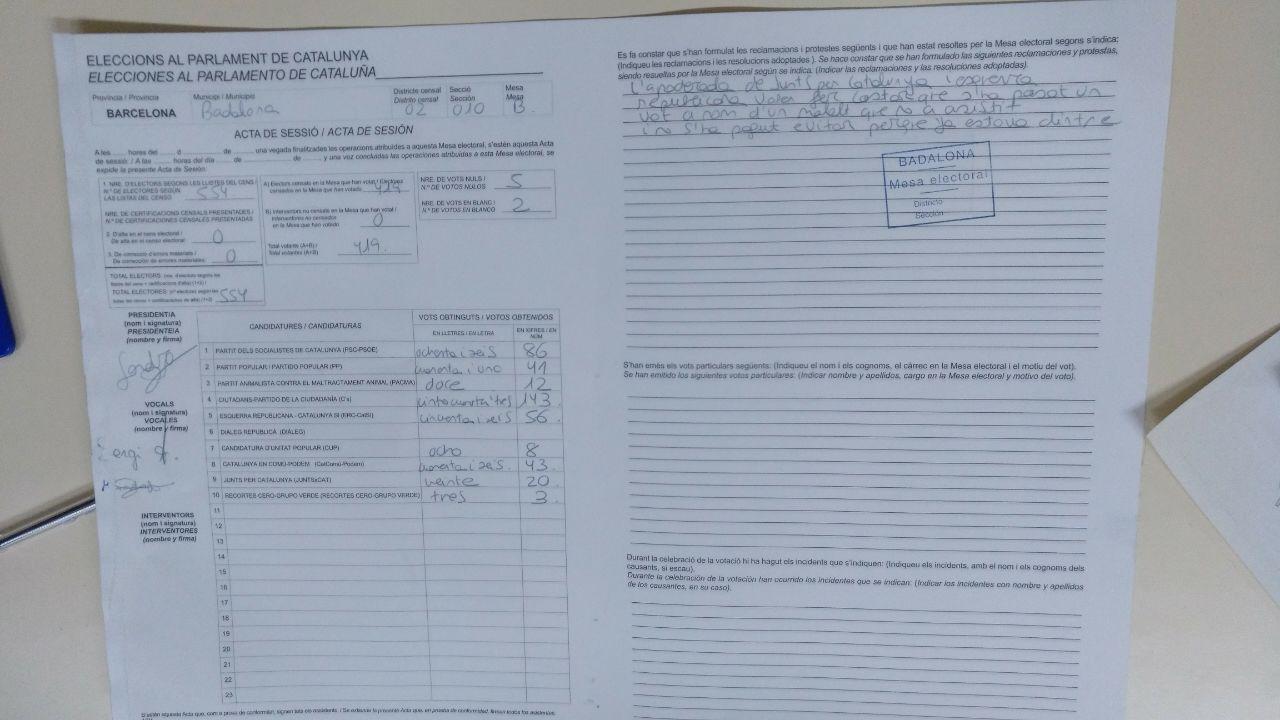 ELECCIONS AL PARLAMENT DE CATALUNYA
ELECCIONES AL PARLAMENTO DE CATALUÑA
Provincia / Provincia
BARCELONA
Municipi / Municipio
Badalona
Districte censal
Distrito censal
02
Secció
Sección
010
Mesa
Mesa
B
ACTA DE SESSIÓ / ACTA DE SESIÓN
A les ...... hores del ...... d ............ de ........ una vegada finalitzades les operacions atribuïdes a aquesta Mesa electoral, s'estén aquesta Acta
de sessió: / A las ...... horas del día ...... de ............ de ........ y una vez concluidas las operaciones atribuidas a esta Mesa electoral, se
expide la presente Acta de Sesión:
1. NRE. D'ELECTORS SEGONS LES LLISTES DEL CENS /
N.º DE ELECTORES SEGÚN
LAS LISTAS DEL CENSO
554
NRE. DE CERTIFICACIONS CENSALS PRESENTADES /
N.º DE CERTIFICACIONES CENSALES PRESENTADAS
2. D'alta en el cens electoral /
De alta en el censo electoral:
0
3. De correcció d'errors materials /
De corrección de errores materiales:
0
TOTAL ELECTORS:
TOTAL ELECTORES:
554
A) Electors censats en la Mesa que han votat / Electores
censados en la Mesa que han votado
419
B) Interventors no censats en la Mesa que han votat /
Interventores no censados
en la Mesa que han votado
0
Total votants (A+B) /
Total votantes (A+B)
419.
NRE. DE VOTS NULS /
N.º DE VOTOS NULOS
5
NRE. DE VOTS EN BLANC /
N.º DE VOTOS EN BLANCO
2
PRESIDENT/A
(nom i signatura)
PRESIDENTE/A
(nombre y firma)
VOCALS
(nom i signatura)
VOCALES
(nombre y firma)
Sergi
INTERVENTORS
(nom i signatura)
INTERVENTORES
(nombre y firma)
CANDIDATURES / CANDIDATURAS
VOTS OBTINGUTS / VOTOS OBTENIDOS
EN LLETRES / EN LETRA
EN XIFRES / EN NÚM
1 PARTIT DELS SOCIALISTES DE CATALUNYA (PSC-PSOE) ochenta i seis 86
2 PARTIT POPULAR / PARTIDO POPULAR (PP) i uno 41
3 PARTIT ANIMALISTA CONTRA EL MALTRACTAMENT ANIMAL (PACMA) doce 12
4 CIUTADANS-PARTIDO DE LA CIUDADANÍA (C's) 143
5 ESQUERRA REPUBLICANA - CATALUNYA SÍ (ERC-CatSí) cinquenta i seis 56
6 DIÀLEG REPUBLICÀ (DIÀLEG)
7 CANDIDATURA D'UNITAT POPULAR (CUP) ocho 8
8 CATALUNYA EN COMÚ-PODEM (CatComú-Podem) 43
9 JUNTS PER CATALUNYA (JUNTSxCAT) veinte 20
10 RECORTES CERO-GRUPO VERDE (RECORTES CERO-GRUPO VERDE) tres 3
11
12
13
14
15
16
17
18
19
20
21
22
23
S'estén aquesta Acta que, com a prova de conformitat, signen tots els assistents. / Se extiende la presente Acta que, en prueba de conformidad, firman todos los asistentes.
Es fa constar que s'han formulat les reclamacions i protestes següents i que han estat resoltes per la Mesa electoral segons s'indica:
(Indiqueu les reclamacions i les resolucions adoptades ). Se hace constar que se han formulado las siguientes reclamaciones y protestas,
siendo resueltas por la Mesa electoral según se indica. (Indicar las reclamaciones y las resoluciones adoptadas).
L'apoderada de Junts per Catalunya i esquerra
republicana volen fer constar que s'ha posat un
vot a nom d'un que no a asistit
i no s'ha pogut evitar perque ja estava dintre
BADALONA
Mesa electoral
Districte
Secció
S'han emès els vots particulars següents: (Indiqueu el nom i els cognoms, el càrrec en la Mesa electoral i el motiu del vot).
Se han emitido los siguientes votos particulares: (Indicar nombre y apellidos, cargo en la Mesa electoral y motivo del voto).
Durant la celebració de la votació hi ha hagut els incidents que s'indiquen: (Indiqueu els incidents, amb el nom i els cognoms dels
causants, si escau).
Durante la celebración de la votación han ocurrido los incidentes que se indican: (Indicar los incidentes con nombre y apellidos
de los causantes, en su caso).